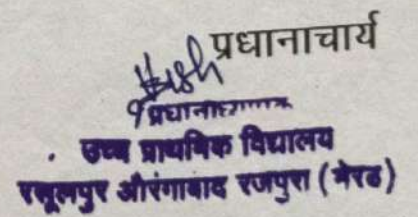 प्रधानाचार्य
प्रधानाध्यापक
उच्च प्राथमिक विद्यालय
रसूलपुर औरंगाबाद रजपुरा (मेरठ)